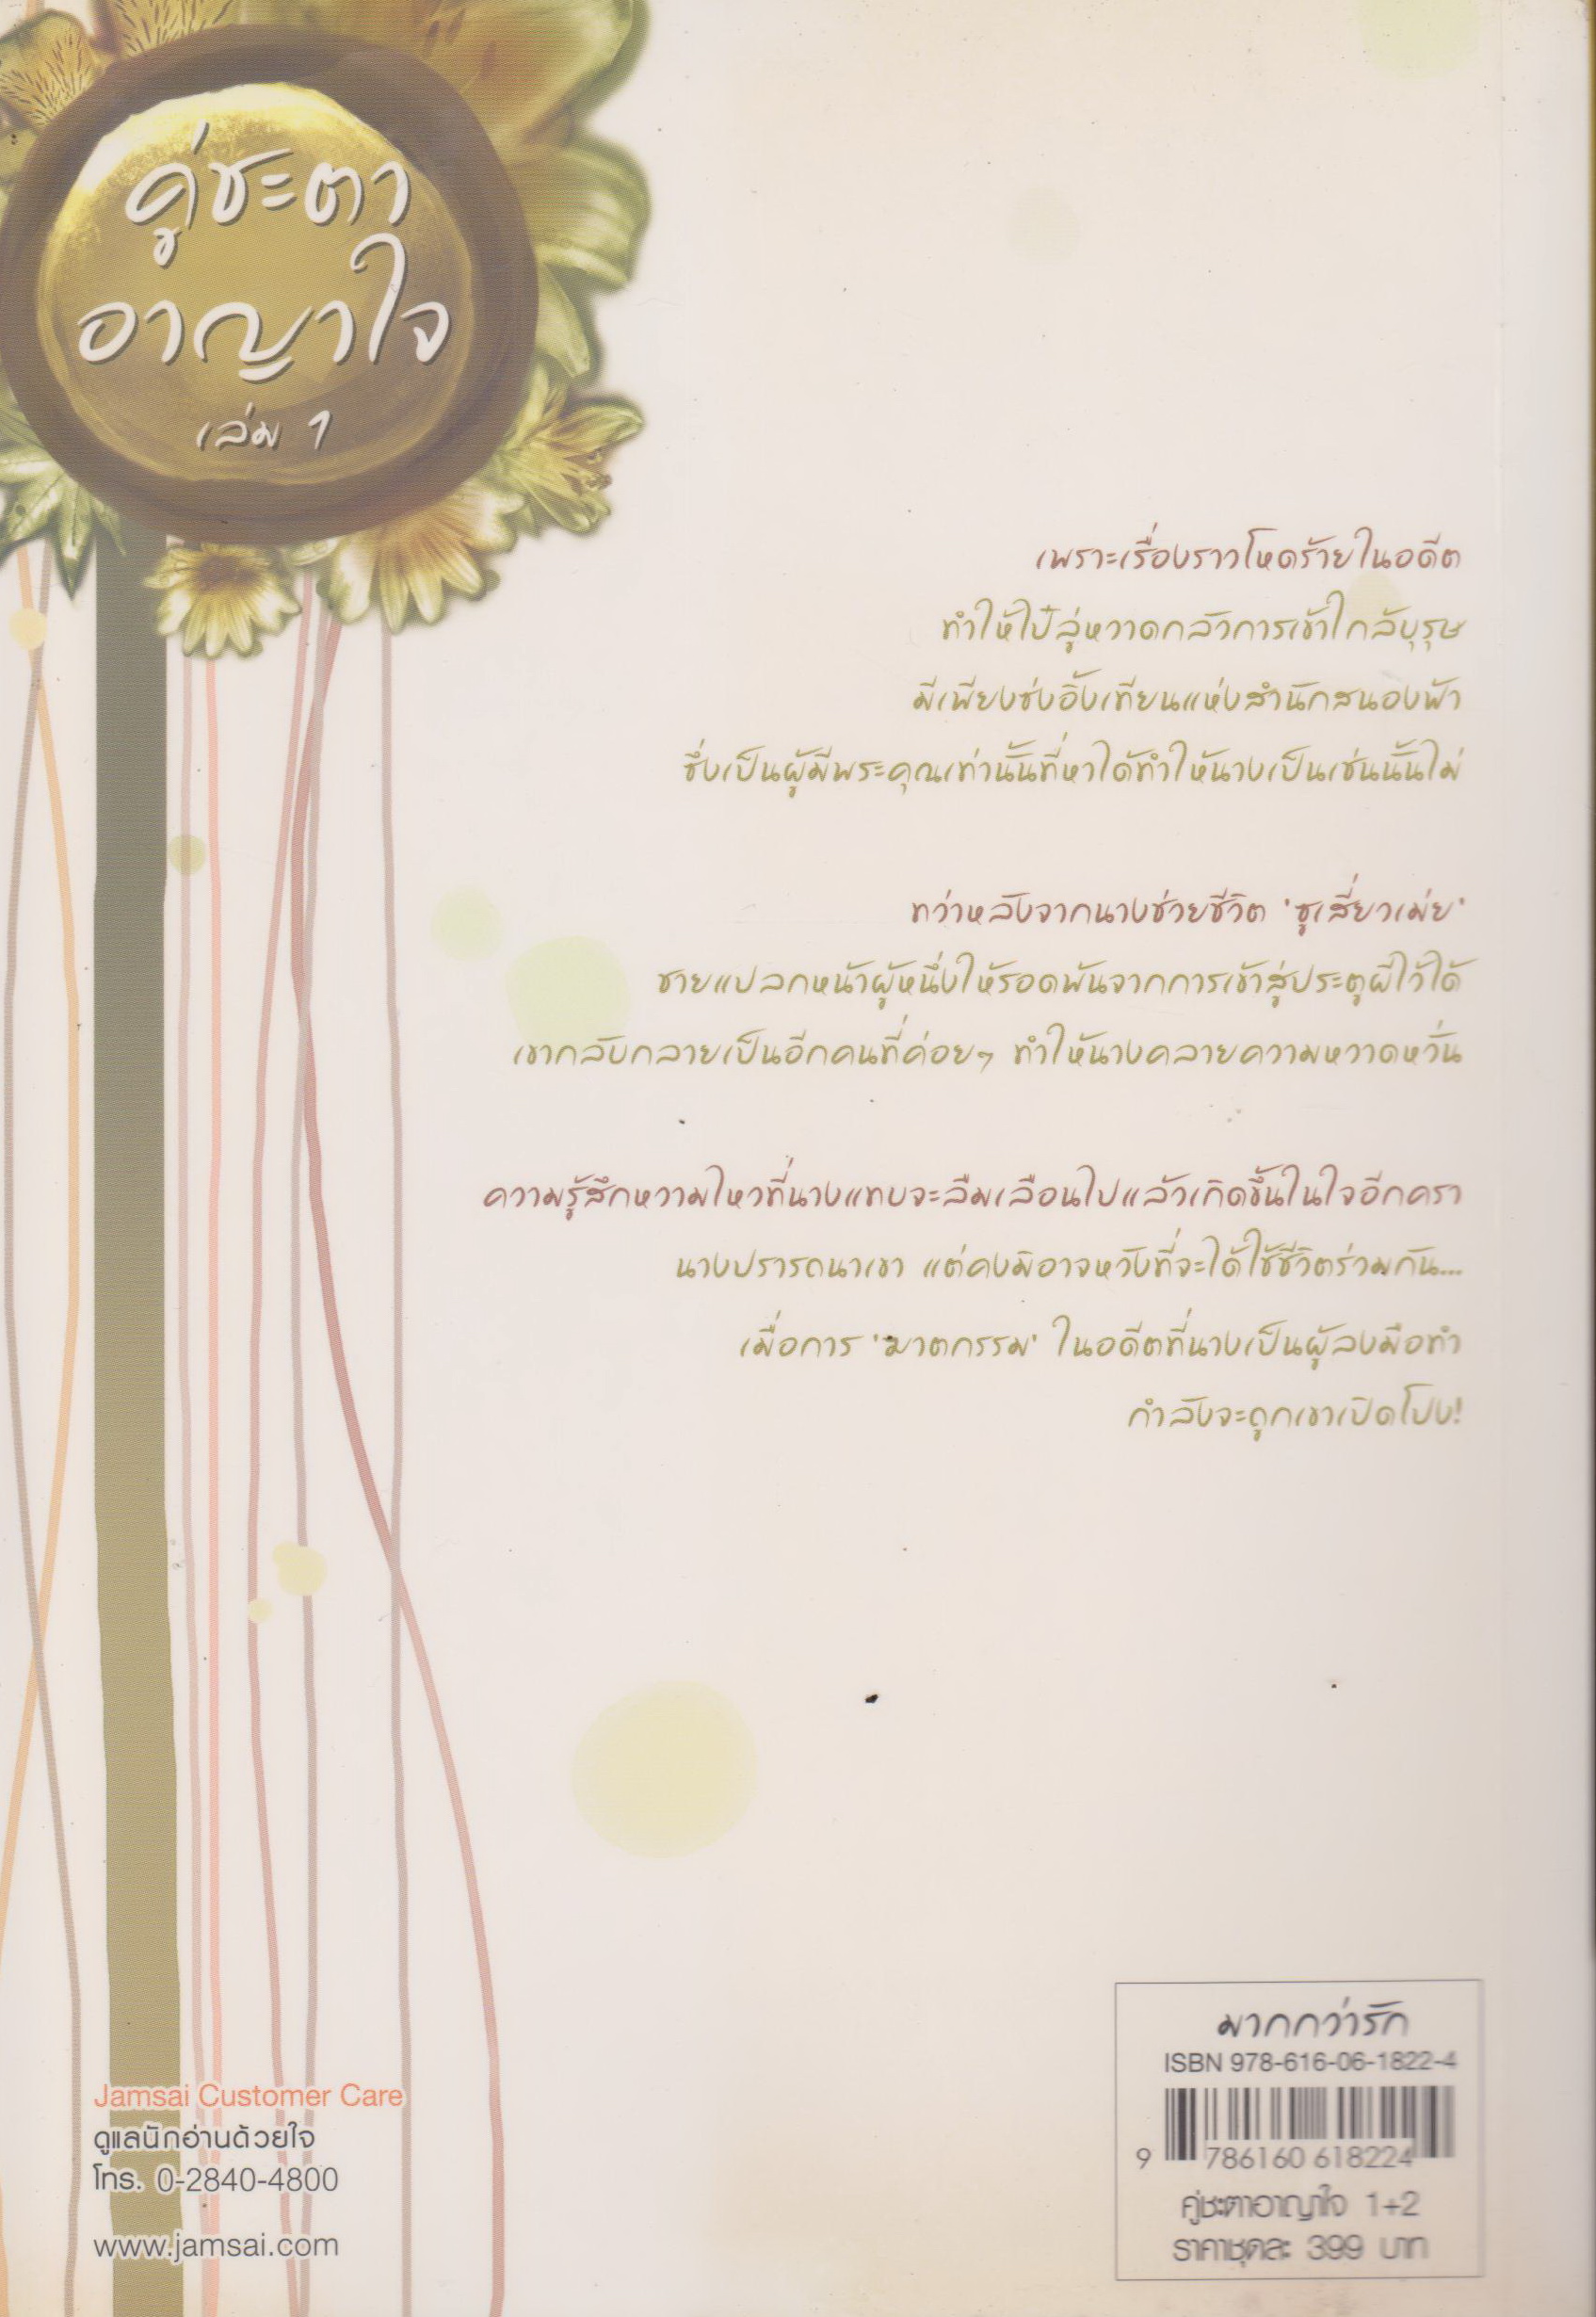 คู่ชะตา
อาญาใจ
เล่ม 1
เพราะเรื่องราวโหดร้ายในอดีต
ทำให้ไป๋ลู่หวาดกลัวการเข้าใกล้บุรุษ
มีเพียงซ่งอิ้งเทียนแห่งสำนักสนองฟ้า
ซึ่งเป็นผู้มีพระคุณเท่านั้นที่หาได้ทำให้นางเป็นเช่นนั้นไม่
ทว่าหลังจากนางช่วยชีวิต 'ซูเสี่ยวเม่ย'
ชายแปลกหน้าผู้หนึ่งให้รอดพ้นจากการเข้าสู่ประตูผีไว้ได้
เขากลับกลายเป็นอีกคนที่ค่อยๆ ทำให้นางคลายความหวาดหวั่น
ความรู้สึกหวามไหวที่นางแทบจะลืมเลือนไปแล้วเกิดขึ้นในใจอีกครา
นางปรารถนาเขา แต่คงมิอาจหวังที่จะได้ใช้ชีวิตร่วมกัน...
เมื่อการ 'ฆาตกรรม' ในอดีตที่นางเป็นผู้ลงมือทำ
กำลังจะถูกเขาเปิดโปง!
มากกว่ารัก
ISBN 978-616-06-1822-4
9 786160 618224
คู่ชะตาอาญาใจ 1+2
ราคาชุดละ 399 บาท
Jamsai Customer Care
ดูแลนักอ่านด้วยใจ
โทร. 0-2840-4800
www.jamsai.com